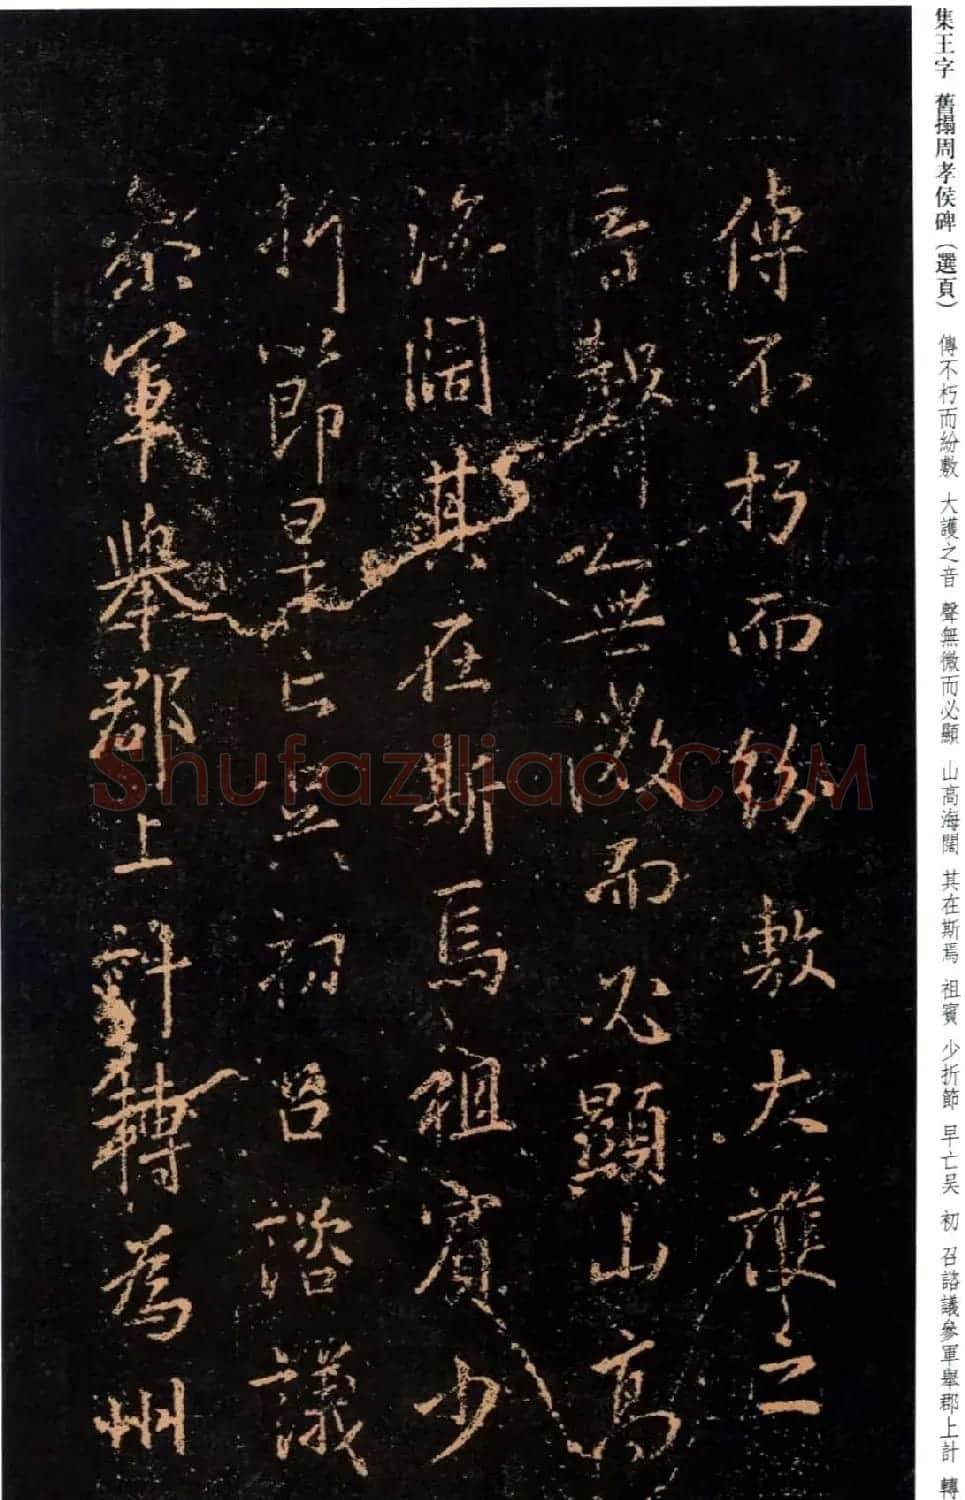 集王字 舊搨周孝侯碑（選頁） 傳不朽而紛敷 大護之音 聲無微而必顯 山高海闊 其在斯焉 祖賓 少折節 早亡吴 初 召諮議參軍舉郡上計 轉
傳不朽而紛敷大護之
音聲無微而必顯山高
海闊其在斯焉祖賓少
折節早亡吴初召諮議
參軍舉郡上計轉為州
Shufaziliao.COM